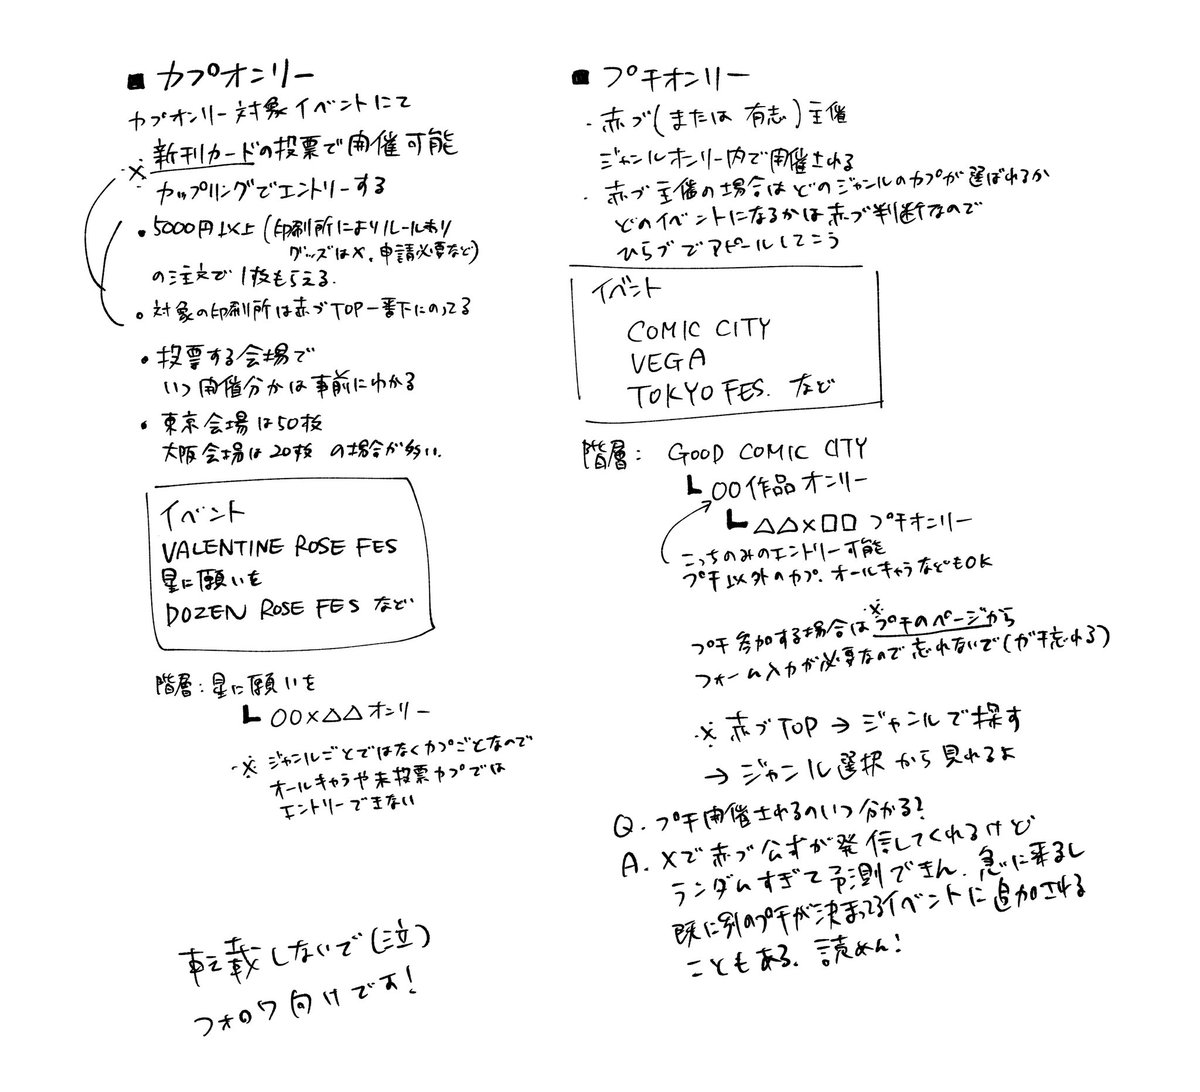 ■ カプオンリー
カプオンリー対象イベントにて
※新刊カードの投票で開催可能
カップリングでエントリーする
・5000円以上(印刷所によりルールあり
グッズは×、申請必要など)
の注文で1枚もらえる.
・対象の印刷所は赤ブTOP一番下にのってる
・投票する会場で
いつ開催分かは事前にわかる
・東京会場は50枚
大阪会場は20枚 の場合が多い.
イベント
VALENTINE ROSE FES
星に願いを
DOZEN ROSE FES など
階層:星に願いを
┗ ○○×△△オンリー
※ ジャンルごとではなくカプごとなので
オールキャラや未投票カプでは
エントリーできない
転載しないで(泣)
フォロワ向けです!
■ プチオンリー
・赤ブ(または 有志)主催
ジャンルオンリー内で開催される
・赤ブ主催の場合はどのジャンルのカプが選ばれるか
どのイベントになるかは赤ブ判断なので
ひらブでアピールしてこう
イベント
COMIC CITY
VEGA
TOKYO FES. など
階層: GOOD COMIC CITY
┗ ○○作品オンリー
┗ △△×□□ プチオンリー
こっちのみのエントリー可能
プチ以外のカプ、オールキャラなどもOK
プチ参加する場合は※プチのページから
フォーム入力が必要なので忘れないで(ガチ忘れる)
※ 赤ブTOP → ジャンルで探す
→ ジャンル選択から見れるよ
Q. プチ開催されるのいつ分かる?
A. Xで赤ブ公式が発信してくれるけど
ランダムすぎて予測できん. 急に来るし
既に別のプチが決まってるイベントに追加される
こともある. 読めん!